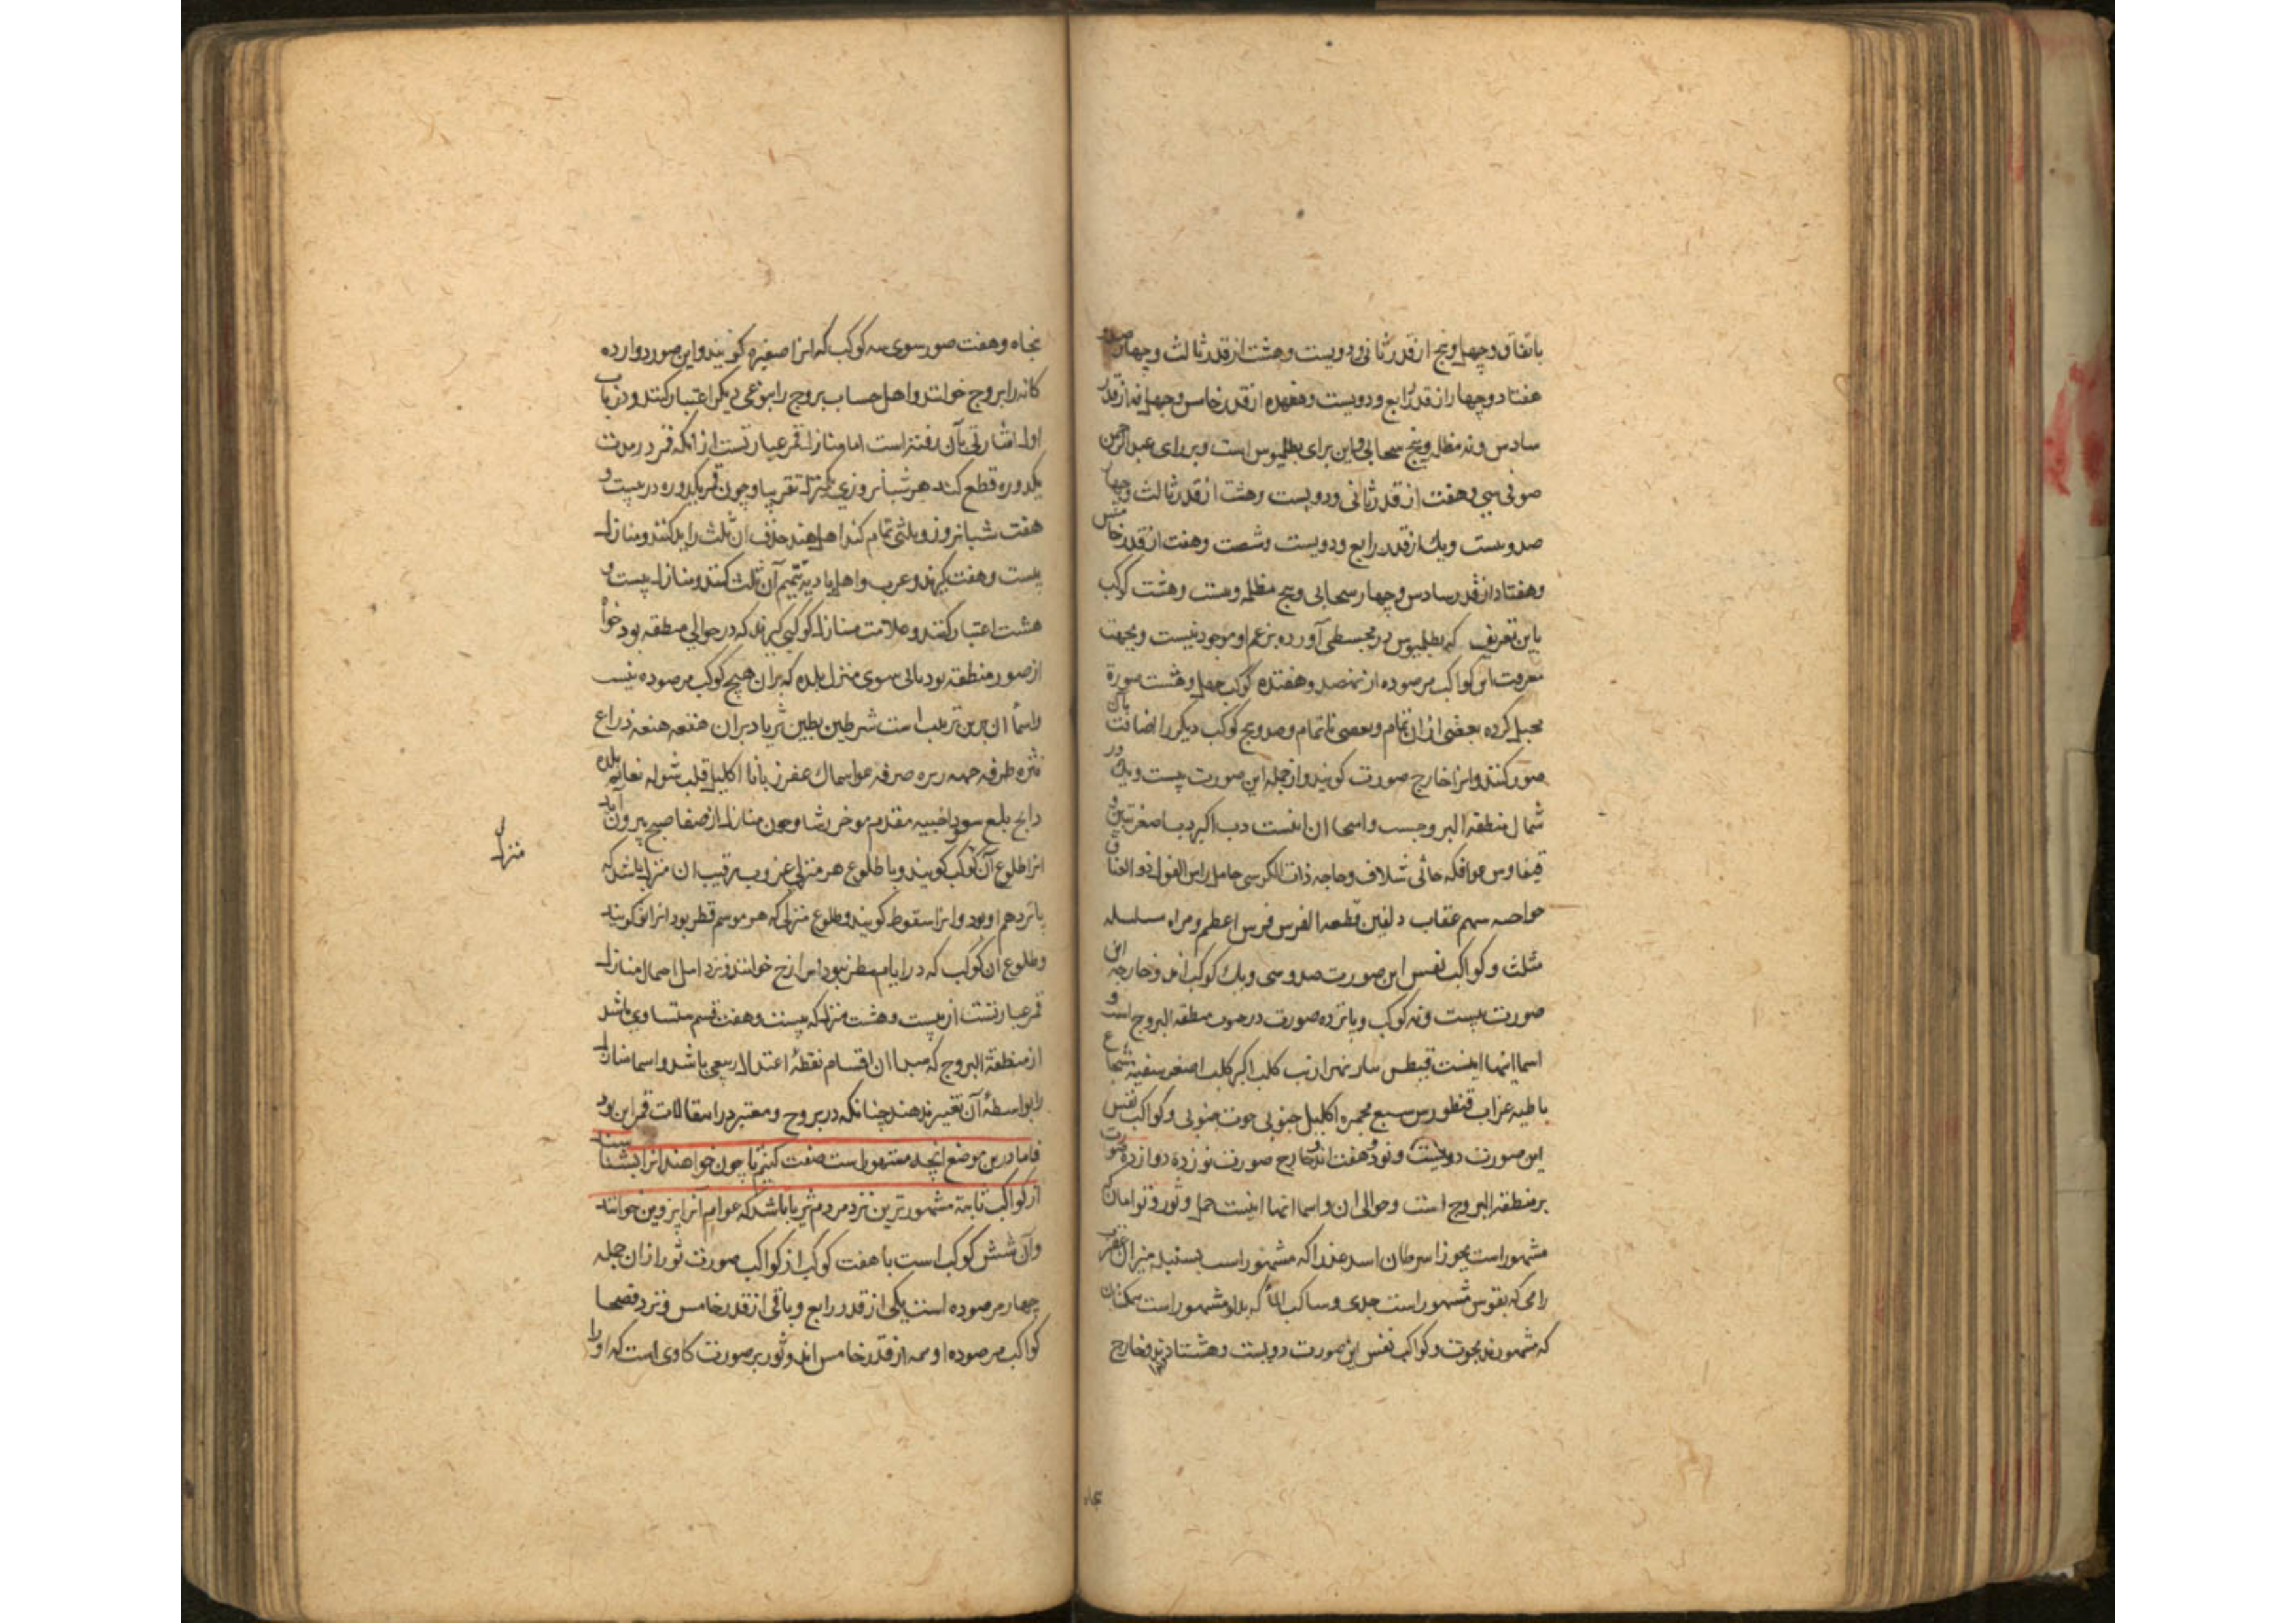 باتفاق و چهل و پنج از قدر ثانی و دویست و هشت از قدر ثالث و چهار صد و
هفتاد و چهار از قدر رابع و دویست و هفده از قدر خامس و چهل نه از قدر
سادس و نه مظلم و پنج سحابی و این برای بطلمیوس است و برای عبدالرحمن
صوفی سی و هفت از قدر ثانی و دویست و هشت از قدر ثالث و چهار
صد و بیست و یک از قدر رابع و دویست و شصت و هفت از قدر خامس
و هفتاد از قدر سادس و چهار سحابی و پنج مظلم و بیست و هشت کوکب
باین تعریف که بطلمیوس در مجسطی آورده بزعم او موجود نیست و بجهت
معرفت این کواکب مرصوده از نهصد و هفتده کوکب چهل و هشت صورة
تخیل کرده بعضی ازان تمام و بعضی ناتمام و صد و پنج کوکب دیگر را اضافت بآن
صور کنند و انرا خارج صورت کویند و از جمله این صورت بیست و یک در
شمال منطقه البروجست و اسماء ان اینست دب اکبر دب اصغر تنین و
قیفاوس عوا فکه جاثی شلاف دجاجه ذات الکرسی حامل راس الغول ذو العنا ق
حوا حیه سهم عقاب دلفین قطعه الفرس فرس اعظم و مراه مسلسله
مثلث و کواکب نفس این صورت صد و سی و یک کوکب اند و خارج این
صورت بیست و نه کوکب و پانزده صورت در جنوب منطقه البروج است و
اسماء انها اینست قیطس جبار نهر ارنب کلب اکبر کلب اصغر سفینه شجاع
باطیه غراب قنطورس سبع مجمره اکلیل جنوبی حوت جنوبی و کواکب نفس
این صورت دویست و نود و هفت اند و خارج صورت نوزده دوازده صورت
بر منطقه البروج است و حوالی ان و اسماء انها اینست حمل و ثور و توامان که
مشهور است بجوزا سرطان اسد عذرا که مشهور است بسنبله میزان عقرب
رامی که بقوس مشهور است جدی و ساکب الماء که بدلو مشهور است سمکتان
که مشهورند بحوت و کواکب نفس این صورت دویست و هشتاد اند و خارج
پنجاه و هفت صور سوی سه کوکب که انرا صغیره کویند و این صور دوازده
کانه را بروج خوانند و اهل حساب بروج را بنوعی دیگر اعتبار کنند و در باب
اول اشارتی بآن رفته است اما منازل قمر عبارتست از انکه قمر در مدت
یکدوره قطع کند هر شبانروزی یکمنزله تقریبا و چون قمر یکدوره در بیست و
هفت شبانروز و ثلثی تمام کند اهل هند حذف ان ثلث را بکنند و منازل
بیست و هفت کیرند و عرب و اهل بادیه تتمیم آن ثلث کنند و منازل بیست و
هشت اعتبار کنند و علامت منازل کوکبی کیرند که در حوالی منطقه بود خواه
از صور منطقه بود یانی سوی منزل بلده که بران هیچ کوکب مرصوده نیست
و اسماء ان برین ترتیب است شرطین بطین ثریا دبران هقعه هنعه ذراع
نثره طرفه جبهه زبره صرفه عوا سماک غفر زبانا اکلیل قلب شوله نعایم بلده
ذابح بلع سعود اخبیه مقدم موخر رشا و چون منازل از صفاء صبح بیرون آید
انرا طلوع آن کوکب کویند و با طلوع هر منزلی غروب رقیب ان منزل باشد که
پانزدهم او بود و انرا سقوط کویند و طلوع منزلی که هر موسم قطر بود انرا نو کویند
و طلوع ان کوکب که در ایام مطر نبود انرا زح خوانند و نزد اهل احمال منازل
قمر عبارتست از بیست و هشت منزل که بیست و هفت قسم متساوی باشد
از منطقة البروج که مبدا ان اقسام نقطهٔ اعتدال ربیعی باشد و اسماء منازل
را بواسطهٔ آن تغییر ندهند چنانکه در بروج و معتبر در انتقالات قمر این بود
فاما درین موضع آنچه مشهور است صفت کنیم تا چون خواهند انرا بشناسند
از کواکب ثابته مشهور ترین نزد مردم ثریا باشد که عوام آنرا پروین خوانند
و آن شش کوکب است با هفت کوکب از کواکب صورت ثور ازان جمله
چهار مرصوده است یکی از قدر رابع و باقی از قدر خامس و نزد فصحا
کواکب مرصوده او سه از قدر خامس اند و ثور بر صورت کاوی است که او را
منزل